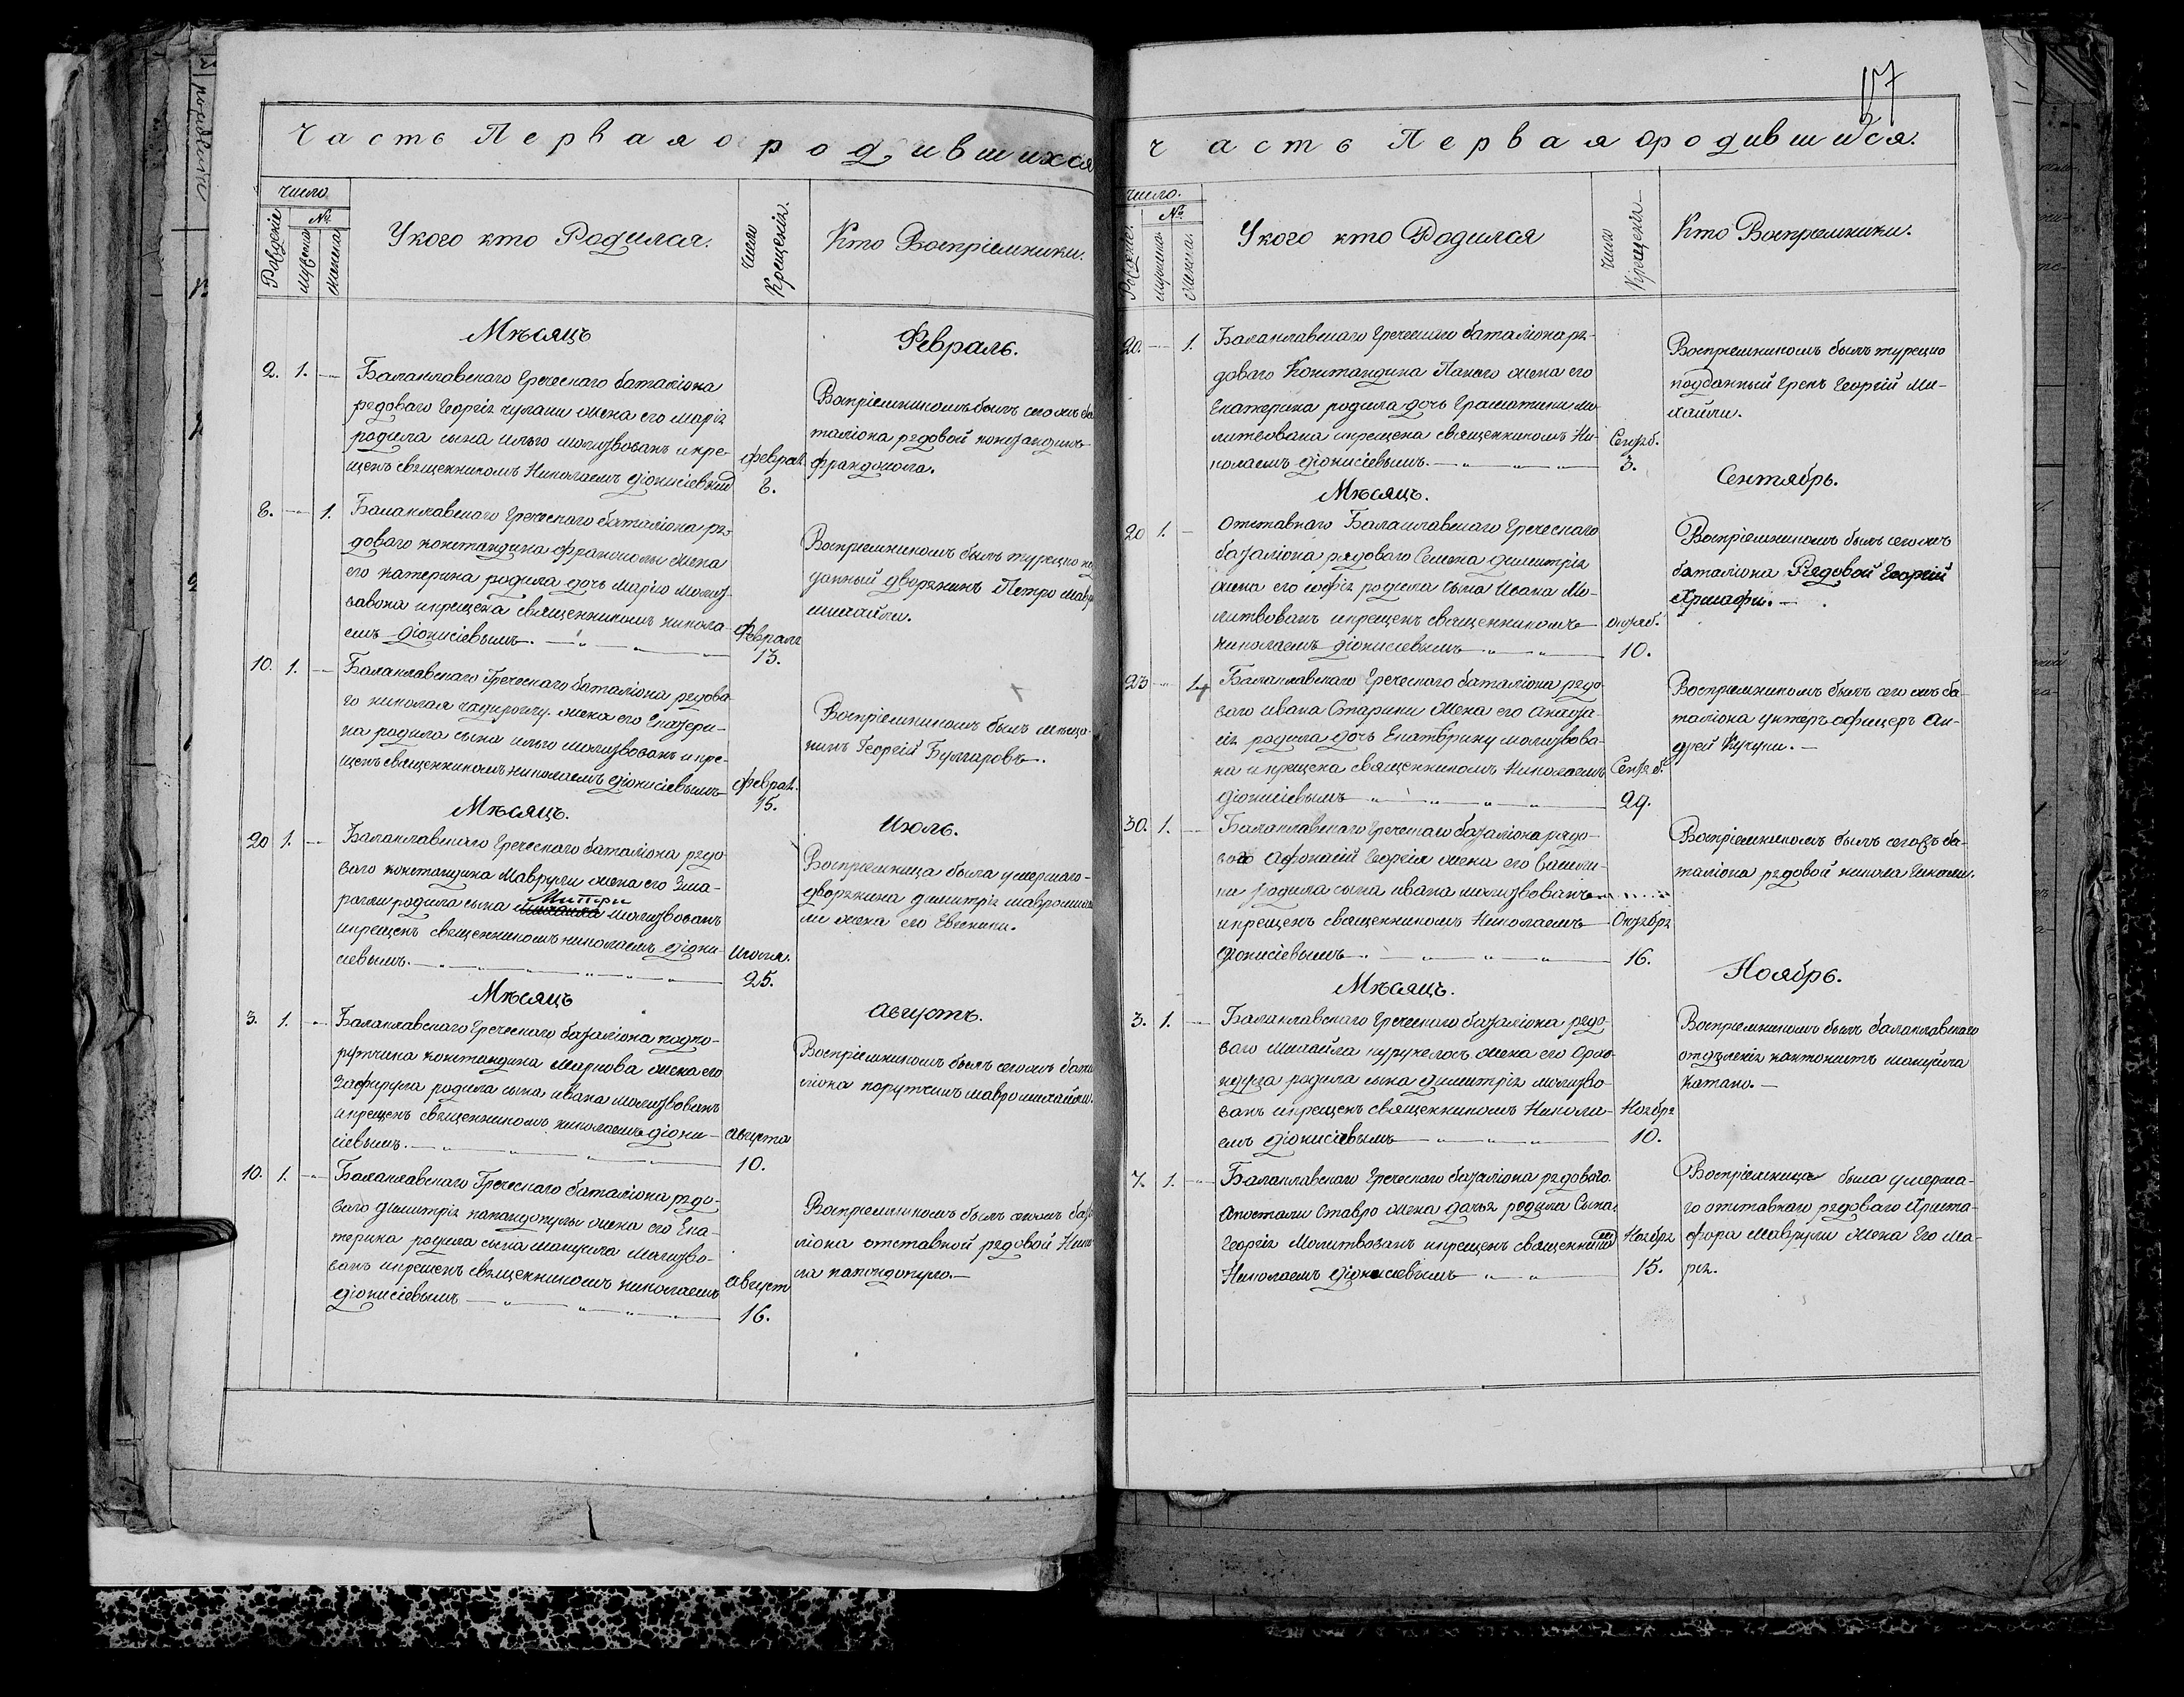 Часть Первая о родившихся
Число
№
Рожденіе
мужеска
женска
У кого кто Родился.
Число Крещенія.
Кто Воспріемники.
Мѣсяцъ
Февраль.
2. 1. —
Балаклавскаго Греческаго баталіона
рядоваго Георгія чулаки жена его марія
родила сына илью молитвованъ и кре-
щенъ священникомъ Николаемъ діонисіевымъ
Феврал.
8.
Воспріемникомъ былъ сегожъ ба
таліона рядовой констандинъ
франдополо.
8. — 1.
Балаклавскаго Греческаго баталіона ря-
доваго констандина франгополы жена
его катерина родила дочь марію молит-
вавона и крещена священникомъ никола-
емъ діонисіевымъ.
Февраля
13.
Воспріемникомъ былъ турецко по
данный дворянинъ Петро мавро
михайли.
10. 1. —
Балаклавскаго Греческаго баталіона рядова
го николая чадироглу жена его Екатери-
на родила сына илью молитвованъ и кре-
щенъ священникомъ николаемъ діонисіевымъ
Феврал.
15.
Воспріемникомъ былъ мѣща-
нинъ Георгій Булгаровъ.
Мѣсяцъ.
Июль.
20 1. —
Балаклавскаго Греческаго баталіона рядо
ваго констандина Маврули жена его Зма-
рагли родила сына Митри молитвованъ
и крещенъ священникомъ николаемъ діони-
сіевымъ.
Июля.
25.
Воспріемница была умершаго
дворянина димитрія мавромихай
ли жена его Евгеники.
Мѣсяцъ
Августъ.
3. 1. —
Балаклавскаго Греческаго баталіона подпо-
ручика констандина Маркова жена его
Зафирула родила сына ивана молитвованъ
и крещенъ священникомъ николаемъ діони-
сіевымъ.
Августа
10.
Воспріемникомъ былъ сегожъ бата
ліона поручикъ мавромихайли.
10. 1. —
Балаклавскаго Греческаго баталіона рядо-
ваго димитрія папандопулы жена его Ека-
терина родила сына мануила молитво-
ванъ и крещенъ священникомъ николаемъ
діонисіевымъ
Август
16.
Воспріемникомъ былъ сегожъ бата
ліона отставной рядовой Нико
ла папондопуло.—
57
Часть Первая о родившихся.
Число.
№
Рожденіе.
мужеска.
женска.
У кого кто Родился
Число Крещенія
Кто Воспремники.
20. — 1.
Балаклавскаго Греческаго баталіона ря-
доваго Констандина Панаго жена его
Екатерина родила дочь Граматики мо-
литвована и крещена священникомъ Ни-
колаемъ діонисіевымъ.
Сентяб.
3.
Воспремникомъ былъ турецко
подданный Грекъ Георгій Ми-
хайли.
Мѣсяцъ.
Сентябрь.
20 1. —
Отставнаго Балаклавскаго Греческаго
баталіона рядоваго Семена димитрія
жена его софія родила сына Ивана Мо-
литвованъ и крещенъ священникомъ
николаемъ діонисіевымъ
октяб.
10.
Воспріемникомъ былъ сегожъ
баталіона Рядовой Георгій
Хрисафи.—
23 — 1.
Балаклавскаго Греческаго баталіона рядо
ваго ивана Старики жена его Анаста-
сія родила дочь Екатерину молитвова-
на и крещена священникомъ Николаемъ
діонисіевымъ
Сентяб.
29.
Воспремникомъ былъ сегожъ ба-
таліона унтеръ-офицеръ Ан-
дрей Кучуки.—
30. 1. —
Балаклавскаго Греческаго баталіона рядо-
ваго Афонасій Георгія жена его Васили-
ки родила сына ивана молитвованъ
и крещенъ священникомъ Николаемъ
діонисіевымъ
Октября
16.
Воспріемникомъ былъ сегожъ ба-
таліона рядовой никола Николи.
Мѣсяцъ.
Ноябрь.
3. 1. —
Балаклавскаго Греческаго баталіона рядо-
ваго михайла курукелосъ жена его
родила сына димитрія молитво-
ванъ и крещенъ священникомъ Никола-
емъ діонисіевымъ
Ноября
10.
Воспремникомъ былъ балаклавскаго
отдѣленія кантонистъ мануйла
Катано.—
7. 1. —
Балаклавскаго Греческаго баталіона рядоваго
Апостоли Ставро жена дачья родила Сына
Георгія Молитвованъ и крещенъ священникомъ
Николаемъ діонисіевымъ
Ноября
15.
Воспріемница была умерша-
го отставнаго рядоваго Христо-
фора Маврули жена Его Ма-
рія.